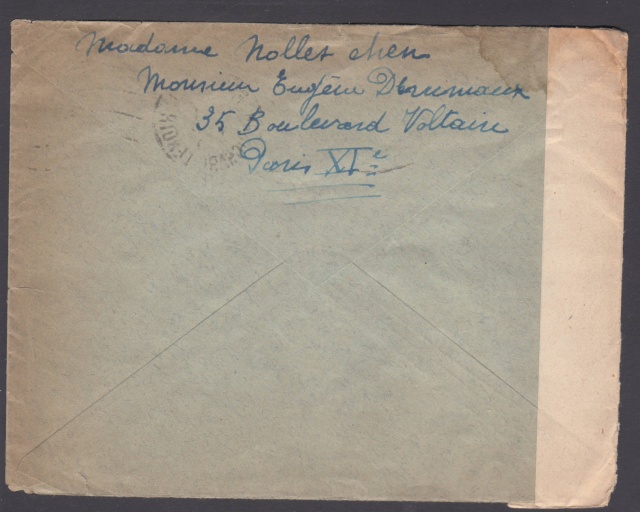 Madame Nollet chez
Monsieur Eugène Derumaux
35 Boulevard Voltaire
Paris XIe